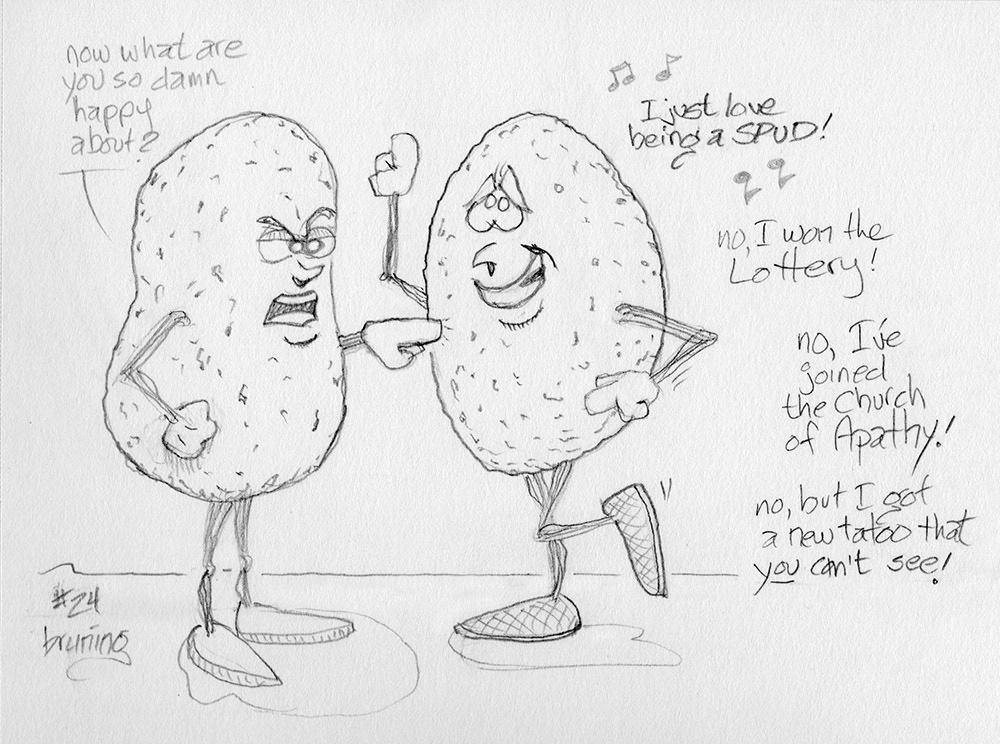 now what are
you so damn
happy
about?
I just love
being a SPUD!
no, I won the
Lottery!
no, I've
joined
the Church
of Apathy!
no, but I got
a new tatoo that
you can't see!
#24
bruning